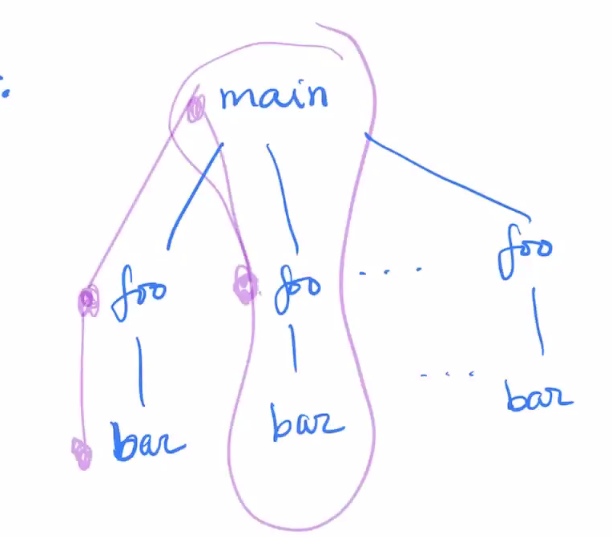 main
foo foo .... foo
bar bar ... bar